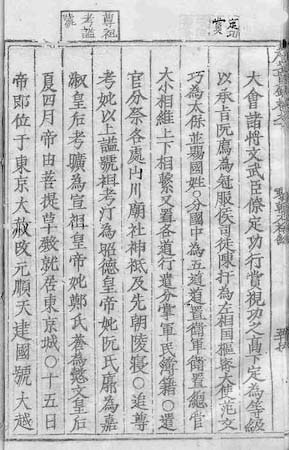 定功賞
尊祖考謚號
大會諸將文武臣僚定功行賞視功之高下定為等級
以承旨阮廌為冠服侯司徒陳扞為左相國樞密大使范文
巧為太保並賜國姓○分國中為五道道置衛軍衛置總管
大小相維上下相繫又置各道行遣分掌軍民簿籍○遣
官分祭各處山川廟社神祇及先朝陵寢○追尊
考妣以上謚號祖考汀為昭德皇帝妣阮氏廓為嘉
淑皇后考曠為宣祖皇帝妣鄭氏蒼為懿文皇后
夏四月帝由菩提草殿就居東京城○十五日
帝即位于東京大赦改元順天建國號大越